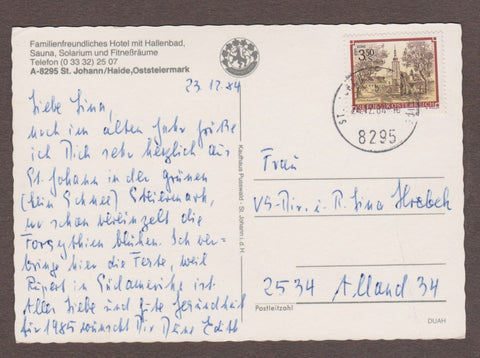 Familienfreundliches Hotel mit Hallenbad,
Sauna, Solarium und Fitneßräume
Telefon (0 33 32) 25 07
A-8295 St. Johann/Haide, Oststeiermark
23.12.84
Liebe Lina,
noch im alten Jahr grüße
ich Dich sehr herzlich aus
St. Johann in der grünen
(kein Schnee) Steiermark,
wo schon vereinzelt die
Forsythien blühen. Ich ver-
bringe hier die Feste, weil
Rupert in Südamerika ist.
Alles Liebe und gute Gesundheit
für 1985 wünscht Dir Deine Edith
Kaufhaus Pusswald · St. Johann i. d. H.
3.50
REPUBLIK ÖSTERREICH
8295
Frau
VS-Dir. i. R. Lina
2534 Alland 34
Postleitzahl
DUAH